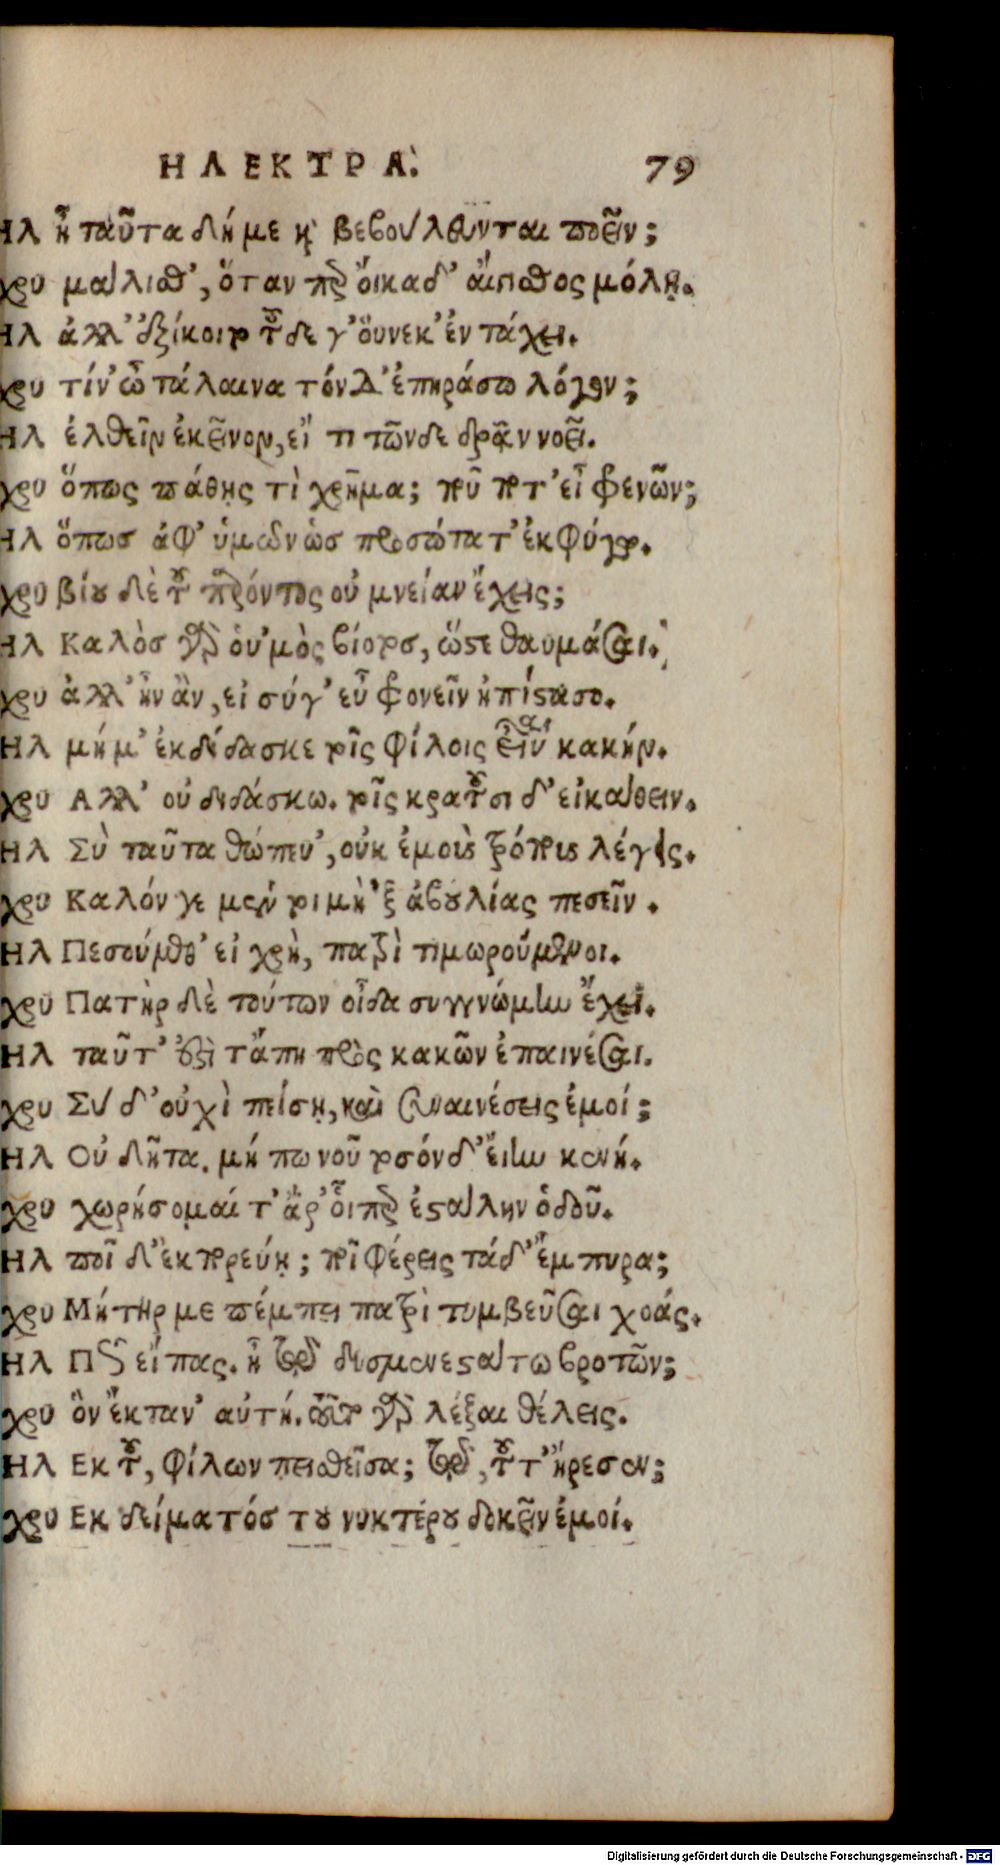 ΗΛΕΚΤΡΑ. 79
Ηλ ἦ ταῦτα δή με καὶ βεβούλευνται ποεῖν;
χρυ μάλισθ', ὅταν περ οἴκαδ' αἴγισθος μόλῃ.
Ηλ ἀλλ' ἐξίκοιτο τοῦδε γ' οὕνεκ' ἐν τάχει.
χρυ τίν' ὦ τάλαινα τόνδ' ἐπηράσω λόγον;
Ηλ ἐλθεῖν ἐκεῖνον, εἴ τι τῶνδε δρᾶν νοεῖ.
χρυ ὅπως πάθῃς τὶ χρῆμα; ποῦ ποτ' εἶ φρενῶν;
Ηλ ὅπωσ ἀφ' ὑμῶν ὡσ προσώτατ' ἐκφύγω.
χρυ βίου δὲ τοῦ παρόντος οὐ μνείαν ἔχεις;
Ηλ Καλὸσ γὰρ οὑ'μὸς βίοτοσ, ὥστε θαυμάσαι.
χρυ ἀλλ' ἦν ἂν, εἰ σύγ' εὖ φρονεῖν ἠπίστασο.
Ηλ μή μ' ἐκδίδασκε τοῖς φίλοις εἶναι κακήν.
χρυ Αλλ' οὐ διδάσκω. τοῖς κρατοῦσι δ' εἰκάθειν.
Ηλ Σὺ ταῦτα θώπευ', οὐκ ἐμοὺς τρόπους λέγεις.
χρυ Καλόν γε μέν τοι μὴ 'ξ ἀβουλίας πεσεῖν.
Ηλ Πεσούμεθ' εἰ χρὴ, πατρὶ τιμωρούμενοι.
χρυ Πατὴρ δὲ τούτων οἶδα συγγνώμην ἔχει.
Ηλ ταῦτ' ἐστὶ τἄπη πρὸς κακῶν ἐπαινέσαι.
χρυ Σύ δ' οὐχὶ πείσῃ, καὶ συναινέσεις ἐμοί;
Ηλ Οὐ δῆτα. μή πω νοῦ τοσόνδ' εἴην κενή.
χρυ χωρήσομαί τ' ἄρ' οἷπερ ἐστάλην ὁδοῦ.
Ηλ ποῖ δ' ἐκπορεύῃ; ποῖ φέρεις τάδ' ἔμπυρα;
χρυ Μήτηρ με πέμπει πατρὶ τυμβεῦσαι χοάς.
Ηλ Πῶς εἶπας. ἦ τῷ δυσμενεστάτῳ βροτῶν;
χρυ ὃν ἔκταν' αὐτή. τοῦτο γὰρ λέξαι θέλεις.
Ηλ Εκ τοῦ, φίλων πεισθεῖσα; τῷ, τοῦτ' ἤρεσεν;
χρυ Εκ δείματόσ του νυκτέρου δοκεῖν ἐμοί.
Digitalisierung gefördert durch die Deutsche Forschungsgemeinschaft - DFG